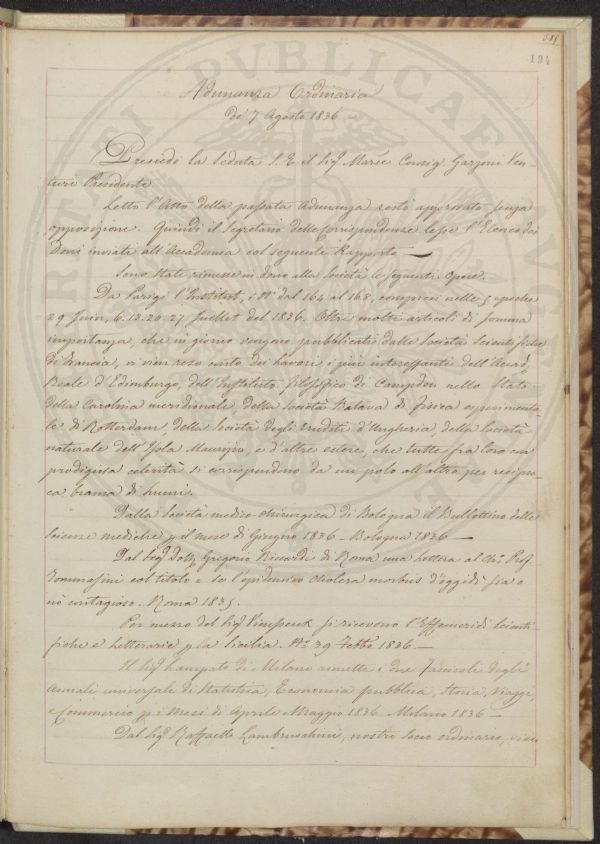 194
Adunanza Ordinaria
de' 7 Agosto 1836 –
Presiede la Seduta S. E. il Sig.r March.se Consig. Garzoni Ven-
turi Presidente
Letto l'Atto della passata Adunanza restò approvato senza
opposizione. Quindi il Segretario delle Corrispondenze lesse l'Elenco dei
Doni inviati all'Accademia col seguente Rapporto —
Sono state rimesse in dono alla Società le seguenti Opere.
Da Parigi l'Institut, i N.i dal 164 al 168, compresi nelle 5 epoche
29 Juin, 6. 13. 20. 27 Juillet del 1836. Oltre molti articoli di somma
importanza, che in giorno vengono pubblicati dalle Società scientifiche
di Francia, vi vien reso conto dei lavori i più interessanti dell'Accad.
Reale d'Edimburgo, dell'Instituto filosofico di nello Stato
della Carolina meridionale, della Società Batava di fisica esperimenta-
le di Rotterdam, della Società degli eruditi d'Ungheria, della Società
naturale dell'Isola Maurizio, e d'altre estere, che tutte fra loro con
prodigiosa celerità si corrispondono da un polo all'altro per recipro-
ca brama di lumi.
Dalla Società medico-chirurgica di Bologna il Bullettino delle
Scienze mediche p. il mese di Giugno 1836 – Bologna 1836 —
Dal Sig.r Dott. Gregorio Riccardi di Roma una Lettera al Ch. Prof.
Tommasini col titolo = Se l'epidemico cholera morbus d'oggidì sia o
nò contagioso. Roma 1835.
Per mezzo del Sig.r Vieusseux si ricevono l'Effemeridi scienti-
fiche e Letterarie p. la Sicilia. N.o 39 Febb.o 1836 —
Il Sig.r Lampato di Milano rimette i due fascicoli degli
Annali universale di Statistica, Economia pubblica, Storia, Viaggi,
e Commercio p. i Mesi di Aprile e Maggio 1836. Milano 1836 —
Dal Sig.r Raffaello Lambruschini, nostro Socio ordinario, vien